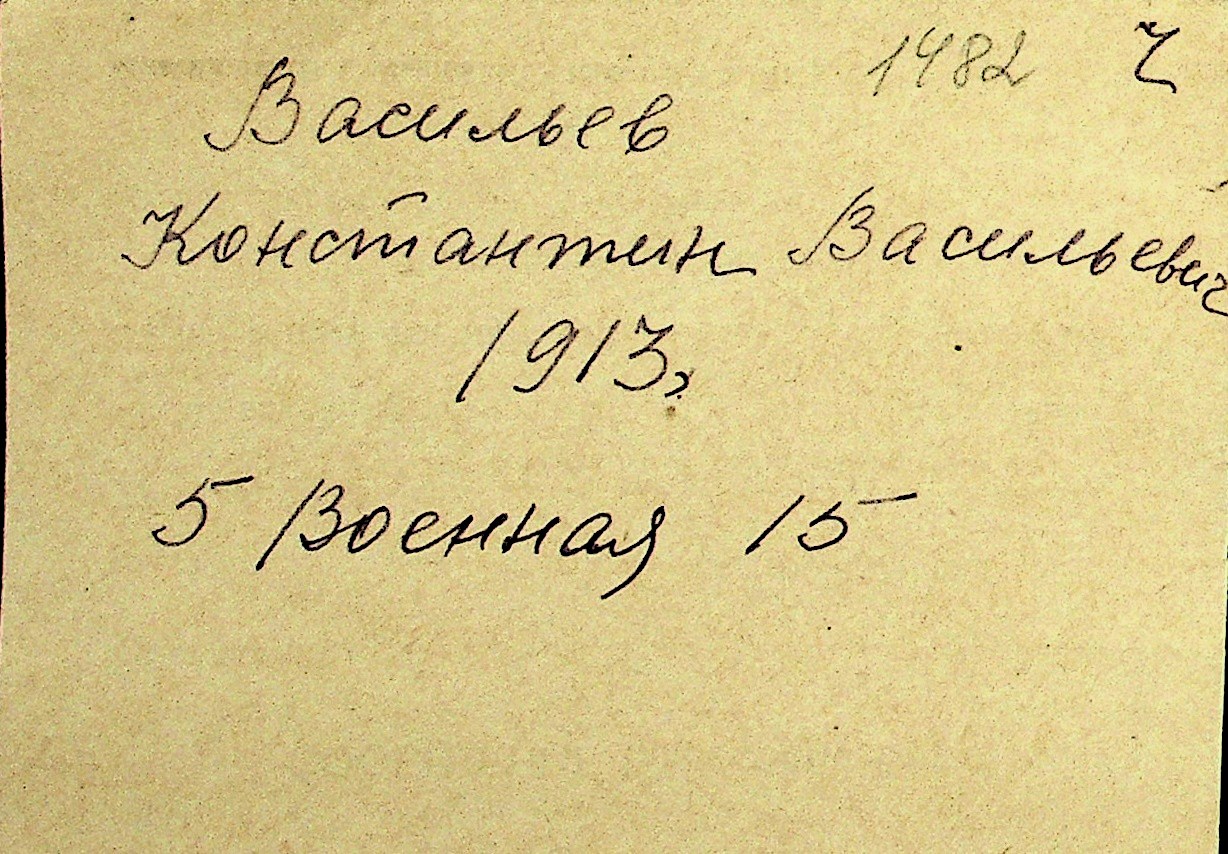 1482 Ч
Васильев
Константин Васильевич
1913г
5 Военная 15